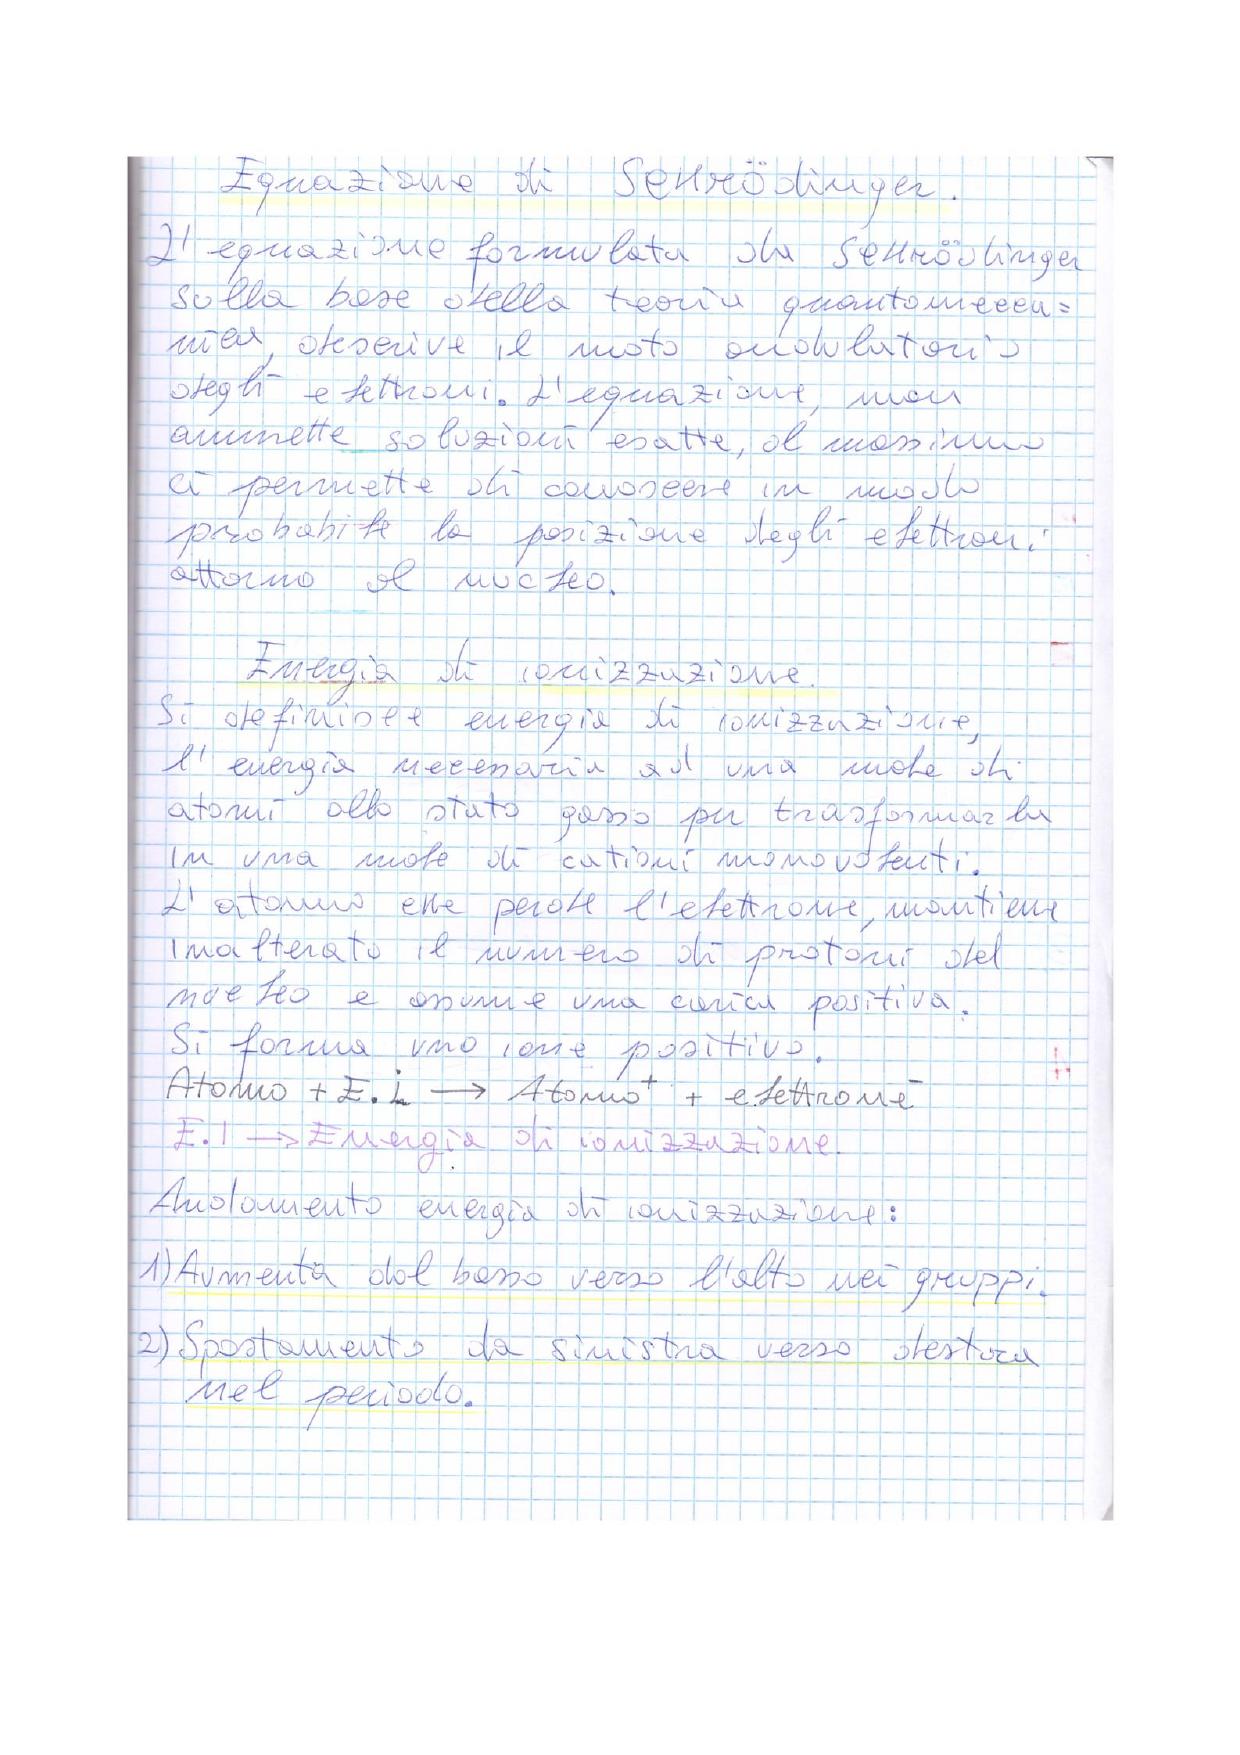 Equazione di Schrödinger.
L'equazione formulata da Schrödinger
sulla base della teoria quantomecca=
nica, descrive il moto ondulatorio
degli elettroni. L'equazione, non
ammette soluzioni esatte, al massimo
ci permette di conoscere in modo
probabile la posizione degli elettroni
attorno al nucleo.
Energia di ionizzazione.
Si definisce energia di ionizzazione,
l'energia necessaria ad una mole di
atomi allo stato gasso per trasformarla
in una mole di cationi monovalenti.
L'atomo che perde l'elettrone, mantiene
inalterato il numero di protoni del
nucleo e assume una carica positiva.
Si forma uno ione positivo.
Atomo + E.i → Atomo⁺ + elettrone⁻
E.I → Energia di ionizzazione.
Andamento energia di ionizzazione:
1) Aumenta dal basso verso l'alto nei gruppi.
2) Spostamento da sinistra verso destra
nel periodo.